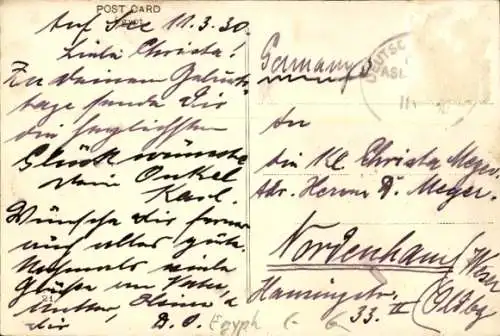 POST CARD
Auf See 11.3.30.
Liebe Christa!
Zu deinem Geburts-
tage sende Dir
die herzlichsten
Glückwünsche
dein Onkel
Karl.
Wünsche dir ferner
auch alles gute.
Nochmals viele
Grüße an Vater,
Mutter, u
dir D. O.
21
Germany
DEUTSC
An
die Kl. Christa Meyer
Adr. Herrn D. Meyer.
Nordenham / Weser
Hansingstr. 33. II (Oldbg
Egyph